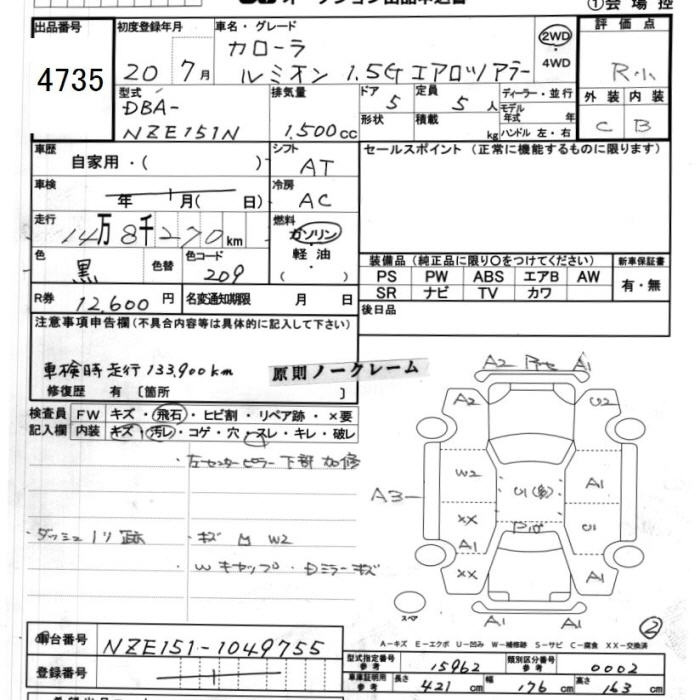 ① 会場控
出品番号
4735
初度登録年月
20 7月
車名・グレード
カローラ
ルミオン 1.5G エアロツアラー
2WD
・
4WD
評価点
R小
外装 内装
C B
型式
DBA-
NZE151N
排気量
1,500cc
ドア 5
定員 5人
形状
積載 kg
ディーラー・並行
モデル年式 年
ハンドル 左・右
車歴
自家用・( )
シフト
AT
セールスポイント (正常に機能するものに限ります)
車検
年 月( 日)
冷房
AC
走行
14万8千270km
燃料
ガソリン
・
軽油
( )
色
黒
色替
色コード
209
装備品 (純正品に限り○をつけてください)
新車保証書
PS PW ABS エアB AW
SR ナビ TV カワ
有・無
R券 12,600円
名変通知期限 月 日
後日品
注意事項申告欄(不具合内容等は具体的に記入して下さい)
車検時走行133,900km
原則ノークレーム
修復歴 有 〔箇所 〕
検査員
記入欄
FW キズ・飛石・ヒビ割・リペア跡・×要
内装 キズ・汚レ・コゲ・穴・スレ・キレ・破レ
左センターピラー下部加修
・ダッシュ
・キズ 凹 W2
Wキャップ・
ミラーキズ
A2 A1
A2 U2
W2 A1
A3
XX
A1
XX A1
A1 A1
スペア
②
A-キズ E-エクボ U-凹み W-補修跡 S-サビ C-腐食 XX-交換済
車台番号 NZE151-1049755
登録番号
型式指定番号
参考
15962
類別区分番号
参考
0002
車庫証明用
参考
長さ 421cm
幅 176cm
高さ 163cm